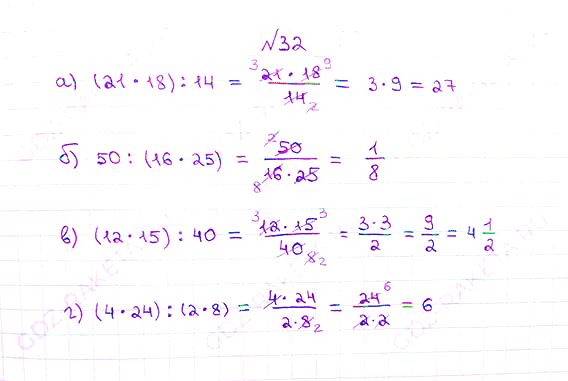 №32
а) (21 · 18) : 14 = ³21 · 18⁹ / 14₂ = 3 · 9 = 27
б) 50 : (16 · 25) = ²50 / ₈16 · 25 = 1/8
в) (12 · 15) : 40 = ³12 · 15³ / 40 ₈ ₂ = 3 · 3 / 2 = 9/2 = 4 1/2
г) (4 · 24) : (2 · 8) = 4 · 24 / 2 · 8₂ = 24⁶ / 2 · 2 = 6